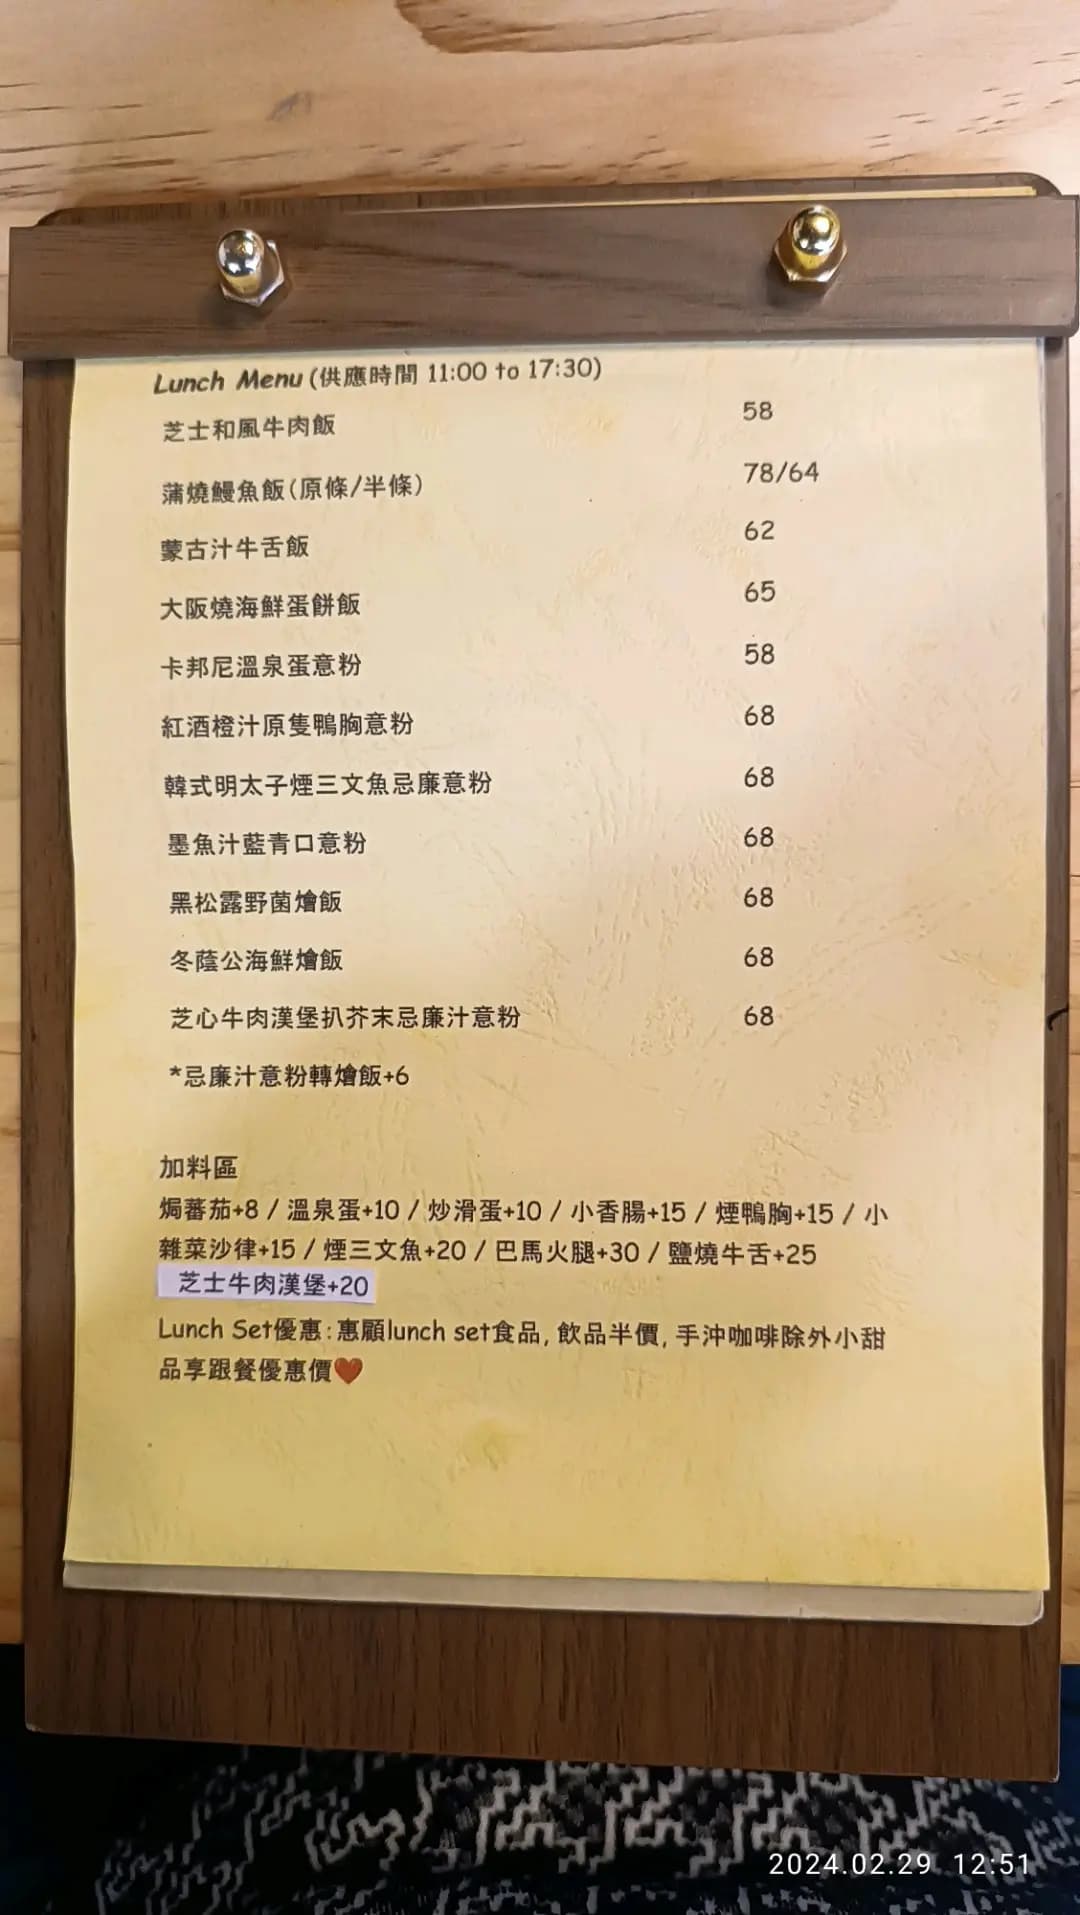 Lunch Menu (供應時間 11:00 to 17:30)
芝士和風牛肉飯 58
蒲燒鰻魚飯(原條/半條) 78/64
蒙古汁牛舌飯 62
大阪燒海鮮蛋餅飯 65
卡邦尼溫泉蛋意粉 58
紅酒橙汁原隻鴨胸意粉 68
韓式明太子煙三文魚忌廉意粉 68
墨魚汁藍青口意粉 68
黑松露野菌燴飯 68
冬蔭公海鮮燴飯 68
芝心牛肉漢堡扒芥末忌廉汁意粉 68
*忌廉汁意粉轉燴飯+6
加料區
焗蕃茄+8 / 溫泉蛋+10 / 炒滑蛋+10 / 小香腸+15 / 煙鴨胸+15 / 小
雜菜沙律+15 / 煙三文魚+20 / 巴馬火腿+30 / 鹽燒牛舌+25
芝士牛肉漢堡+20
Lunch Set優惠:惠顧lunch set食品, 飲品半價, 手沖咖啡除外小甜
品享跟餐優惠價❤️
2024.02.29 12:51